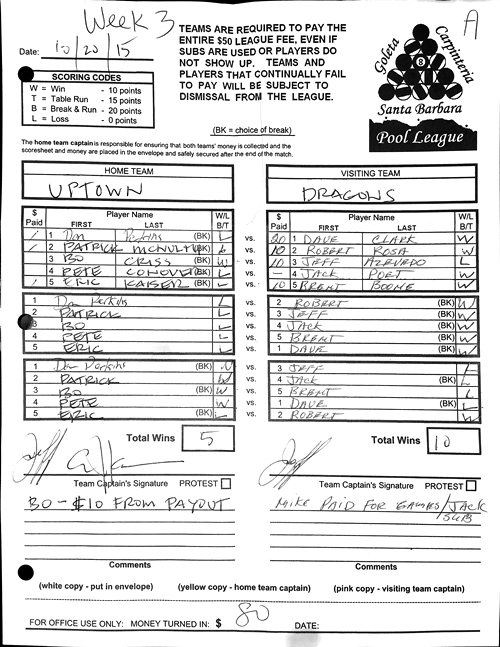 Week 3
A
Date: 10/20/15
TEAMS ARE REQUIRED TO PAY THE
ENTIRE $50 LEAGUE FEE, EVEN IF
SUBS ARE USED OR PLAYERS DO
NOT SHOW UP. TEAMS AND
PLAYERS THAT CONTINUALLY FAIL
TO PAY WILL BE SUBJECT TO
DISMISSAL FROM THE LEAGUE.
SCORING CODES
W = Win - 10 points
T = Table Run - 15 points
B = Break & Run - 20 points
L = Loss - 0 points
Goleta Carpinteria
8
Santa Barbara
Pool League
(BK = choice of break)
The home team captain is responsible for ensuring that both teams' money is collected and the
scoresheet and money are placed in the envelope and safely secured after the end of the match.
HOME TEAM VISITING TEAM
UPTOWN DRAGONS
$ Paid Player Name FIRST LAST W/L B/T $ Paid Player Name FIRST LAST W/L B/T
1 Dan Perkins (BK) L vs. 20 1 DAVE CLARK W
2 PATRICK MCNULTY (BK) L vs. 10 2 ROBERT ROSA W
3 BO CRISS (BK) W vs. 10 3 JEFF AZEVEDO L
4 PETE (BK) L vs. - 4 JACK PORT W
5 ERIC KAISER (BK) L vs. 10 5 BRENT BOONE W
1 Dan Perkins L vs. 2 ROBERT (BK) W
2 PATRICK L vs. 3 JEFF (BK) W
3 BO L vs. 4 JACK (BK) W
4 PETE L vs. 5 BRENT (BK) W
5 ERIC L vs. 1 DAVE (BK) W
1 Dan Perkins (BK) W vs. 3 JEFF L
2 PATRICK W vs. 4 JACK (BK) L
3 BO (BK) W vs. 5 BRENT L
4 PETE W vs. 1 DAVE (BK) L
5 ERIC (BK) L vs. 2 ROBERT W
Total Wins 5 Total Wins 10
Team Captain's Signature PROTEST Team Captain's Signature PROTEST
BO - $10 FROM PAYOUT MIKE PAID FOR GAMES/JACK
SUB
Comments Comments
(white copy - put in envelope) (yellow copy - home team captain) (pink copy - visiting team captain)
FOR OFFICE USE ONLY: MONEY TURNED IN: $ 80 DATE: